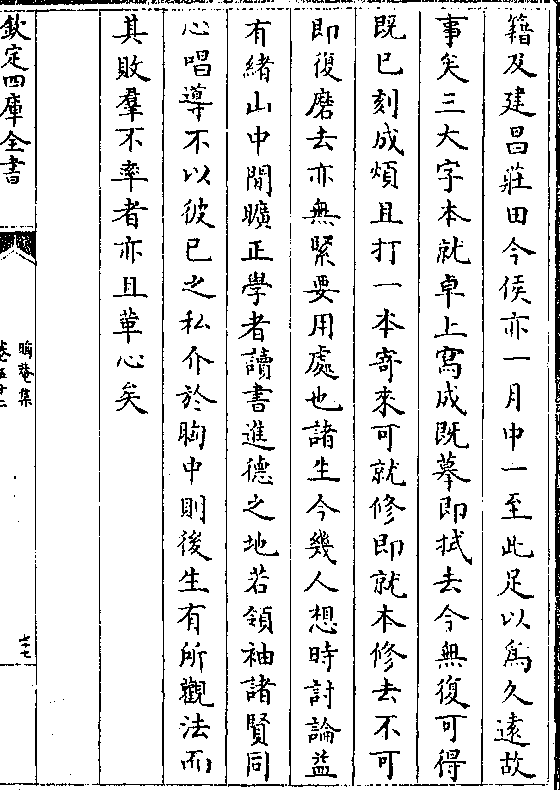 籍及建昌莊田今侯亦一月中一至此足以爲久遠故
事矣三大字本就卓上寫成既摹即拭去今無復可得
既已刻成煩且打一本寄來可就修即就本修去不可
即復磨去亦無緊要用處也諸生今幾人想時討論益
有緒山中閒曠正學者讀書進德之地若領袖諸賢同
心唱導不以彼已之私介於胸中則後生有所觀法而
其敗羣不率者亦且革心矣
欽定四庫全書
晦菴集
卷五十二